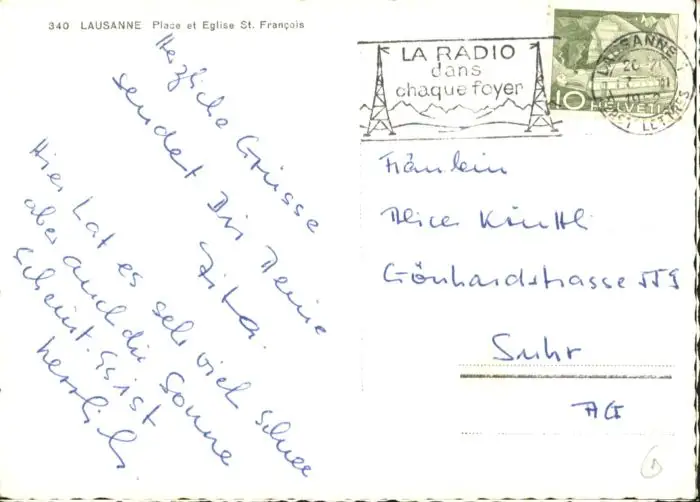 340 LAUSANNE Place et Eglise St. François
Herzliche Grüsse
sendet Dir Deine
Zita.
Hier hat es sehr viel Schnee
aber auch die Sonne
scheint. Es ist
herrlich
LA RADIO
dans
chaque foyer
LAUSANNE 1
10 HELVETIA
Fräulein
Alice
Gönhardstrasse 559
Suhr
AG